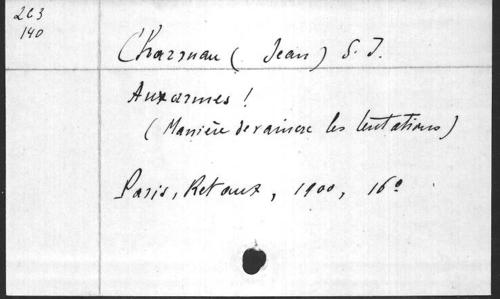 263
140
Charruau (Jean) S. J.
Aux armes !
(Manière de vaincre les tentations)
Paris, Retaux, 1900, 16º